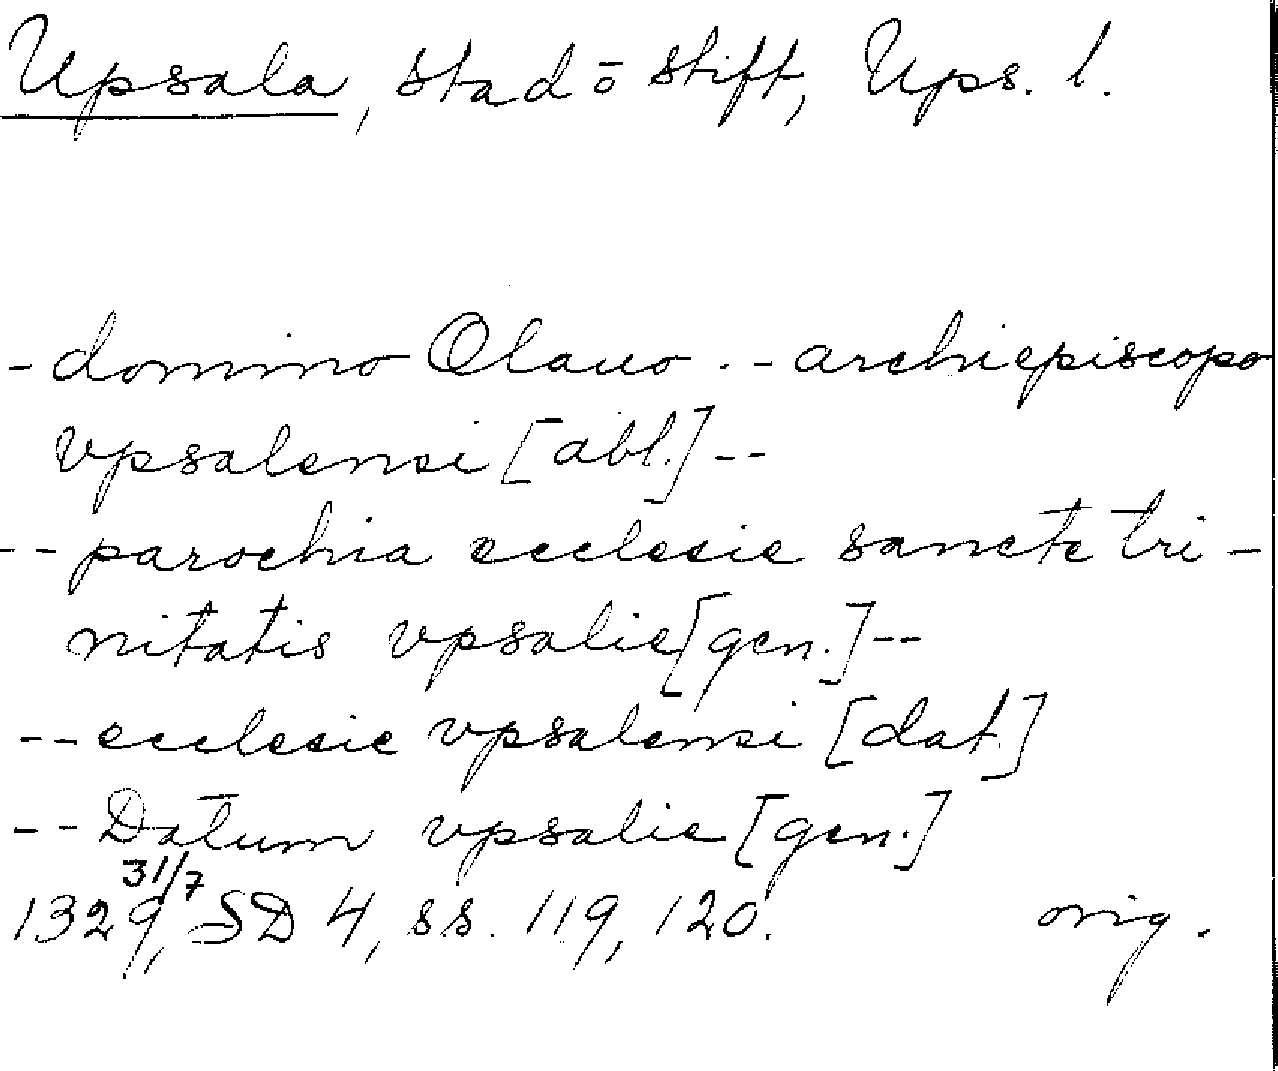 Upsala, stad ō stift, Ups. l.
- domino Olauo -- archiepiscopo
vpsalensi [abl.] --
-- parochia ecclesie sancte tri-
nitatis vpsalie [gen.] --
-- ecclesie vpsalensi [dat.]
-- Datum vpsalie [gen.]
31/7
1329, SD 4, ss. 119, 120. orig.